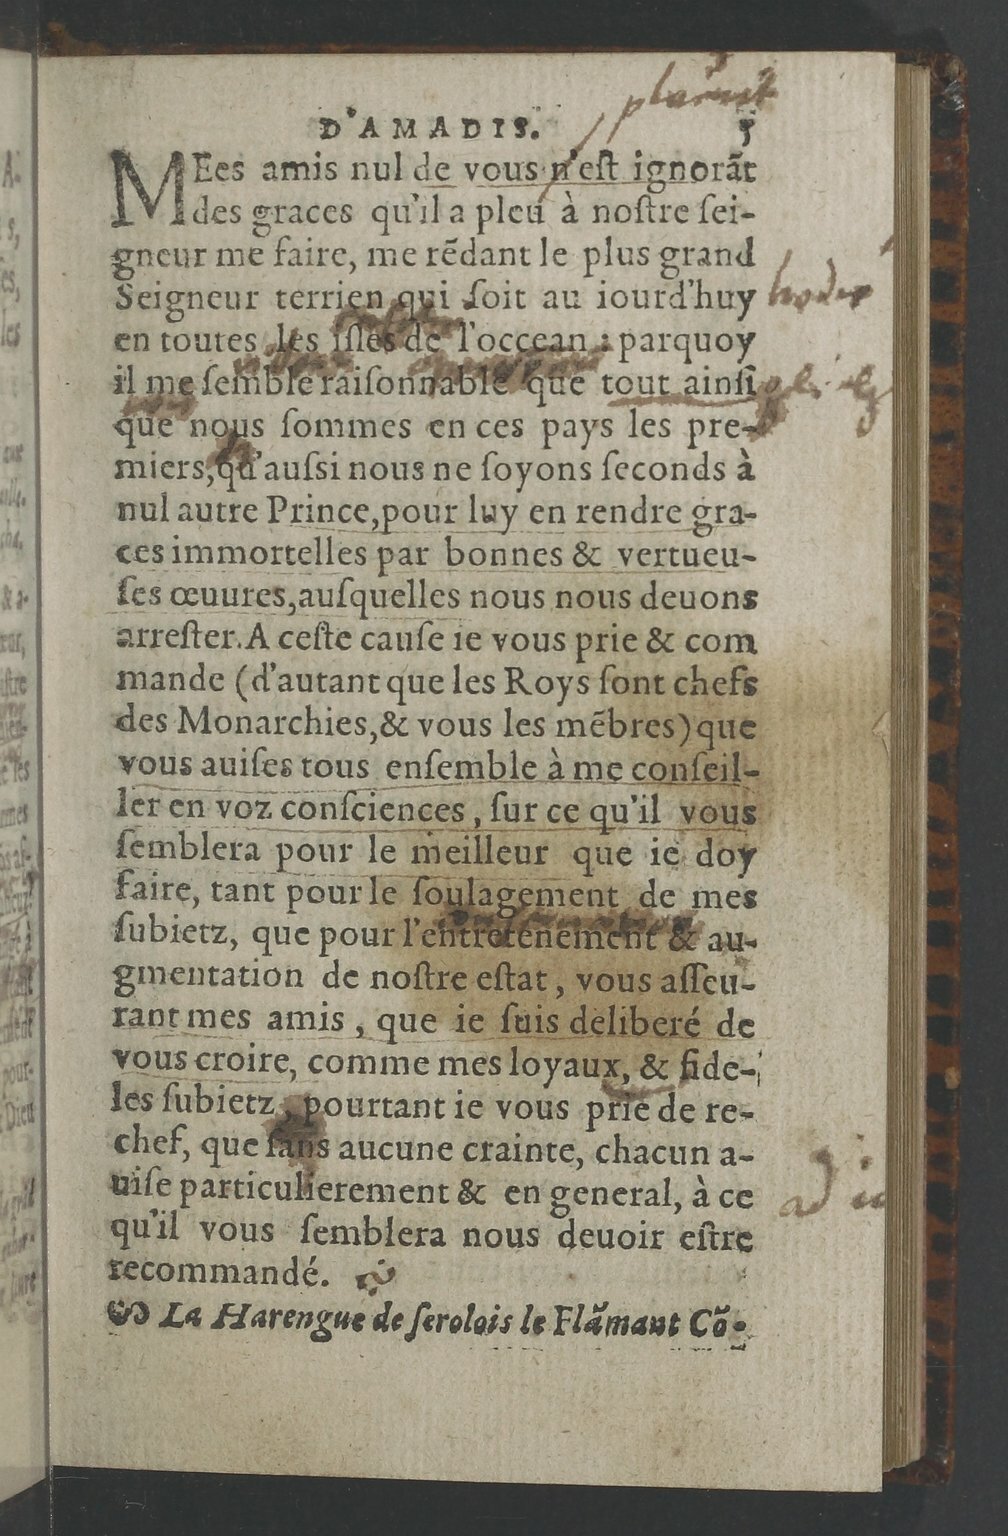 placuit
D'AMADIS. 5
MEes amis nul de vous n'eſt ignorãt
des graces qu'il a pleu à noſtre ſei-
gneur me faire, me rẽdant le plus grand
Seigneur terrien qui ſoit au iourd'huy hodie
en toutes les iſles de l'occean : parquoy
il me ſemble raiſonnable que tout ainſi
que nous ſommes en ces pays les pre-
miers, qu'auſsi nous ne ſoyons ſeconds à
nul autre Prince, pour luy en rendre gra-
ces immortelles par bonnes & vertueu-
ſes œuures, auſquelles nous nous deuons
arreſter. A ceſte cauſe ie vous prie & com
mande (d'autant que les Roys ſont chefs
des Monarchies, & vous les mẽbres) que
vous auiſes tous enſemble à me conſeil-
ler en voz conſciences, ſur ce qu'il vous
ſemblera pour le meilleur que ie doy
faire, tant pour le ſoulagement de mes
ſubietz, que pour l'entretenement & au-
gmentation de noſtre eſtat, vous aſſeu-
rant mes amis, que ie ſuis deliberé de
vous croire, comme mes loyaux, & fide-
les ſubietz, pourtant ie vous prie de re-
chef, que ſans aucune crainte, chacun a-
uiſe particulierement & en general, à ce
qu'il vous ſemblera nous deuoir eſtre
recommandé.
La Harengue de ſerolois le Flãmant Cõ-